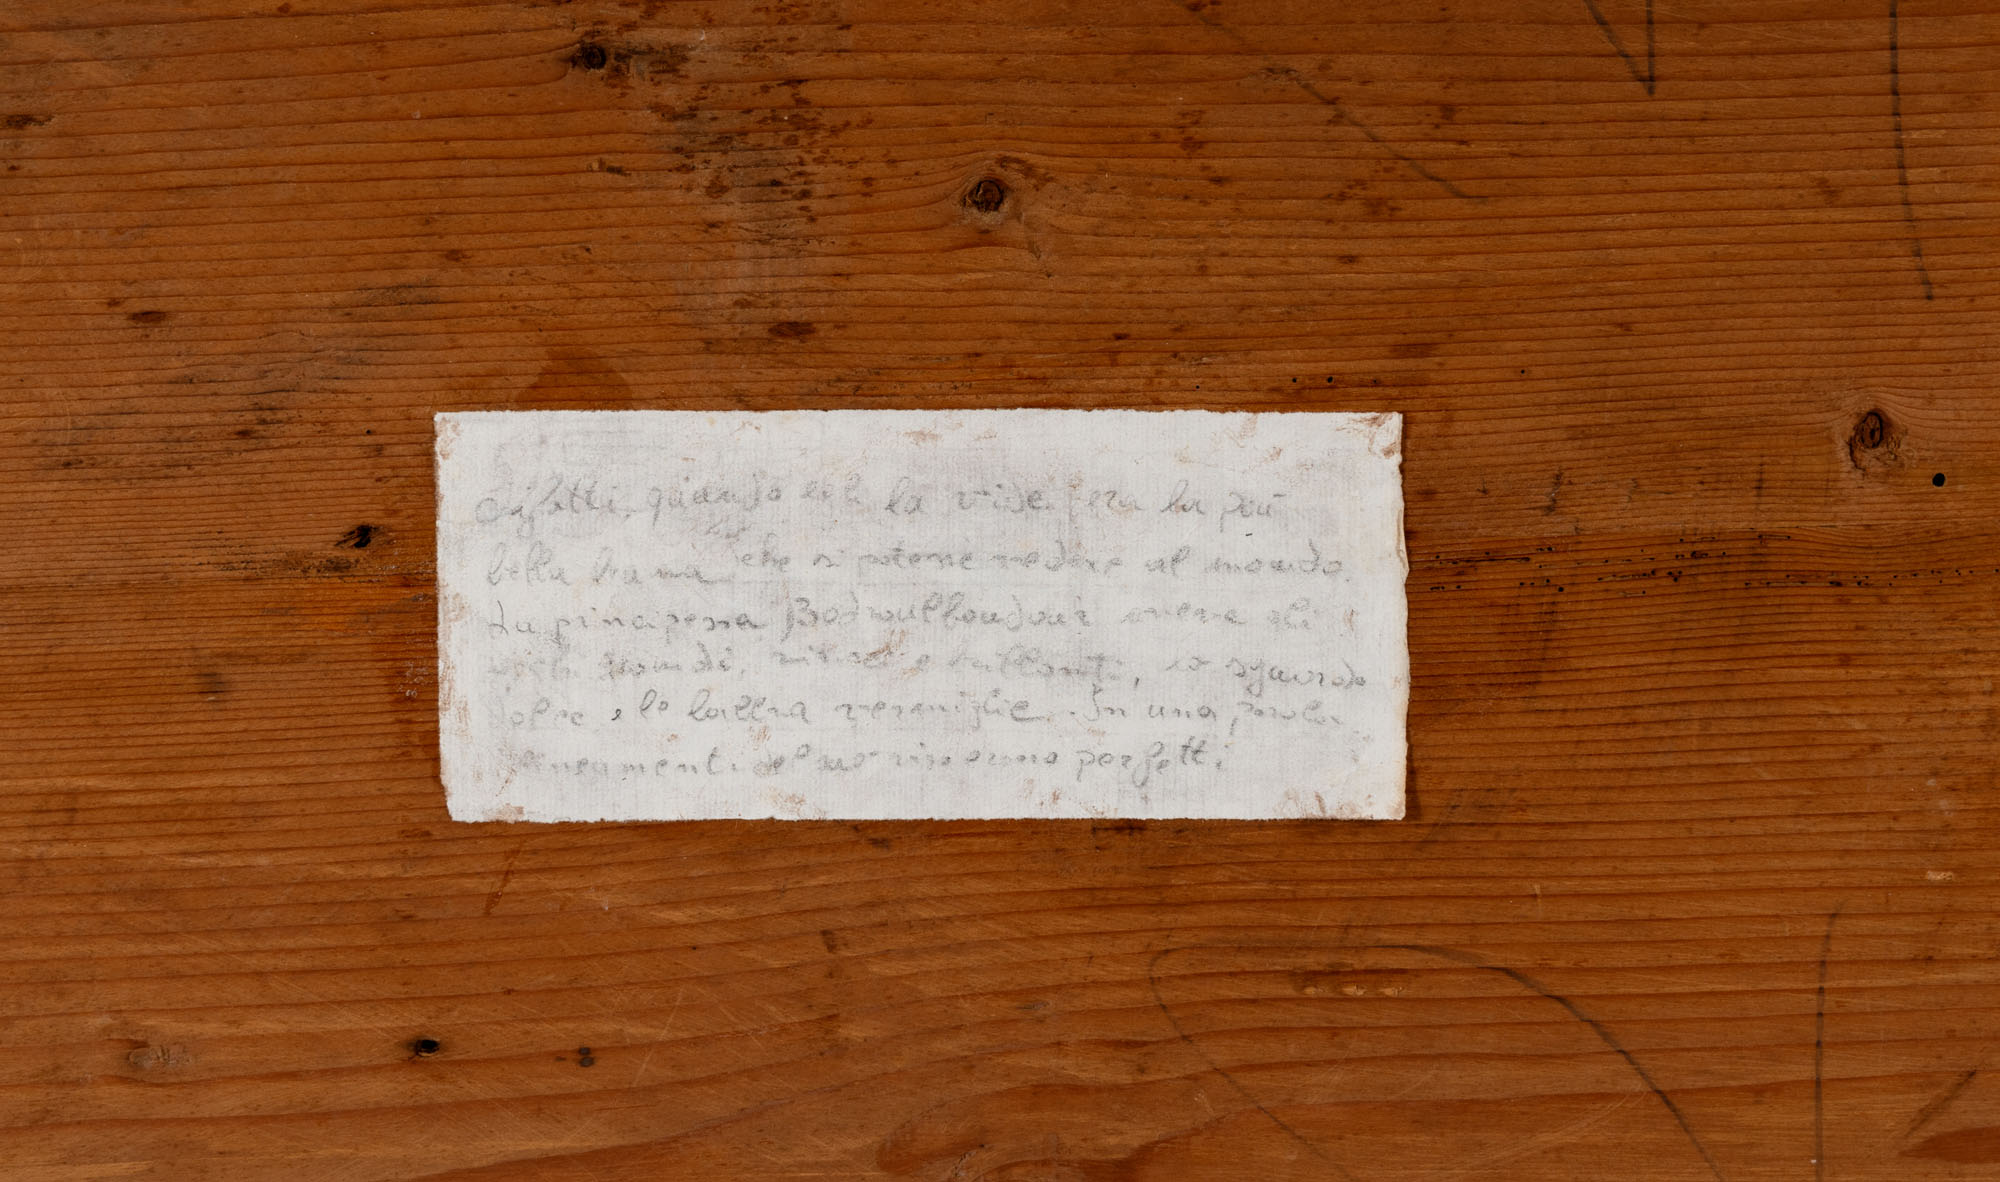 Infatti, quando egli la vide era la più
bella bruna che si potesse vedere al mondo.
La principessa Badroulboudour aveva gli
occhi grandi, vivaci e brillanti, lo sguardo
dolce e le labbra vermiglie. In una parola
lineamenti del suo viso erano perfetti.